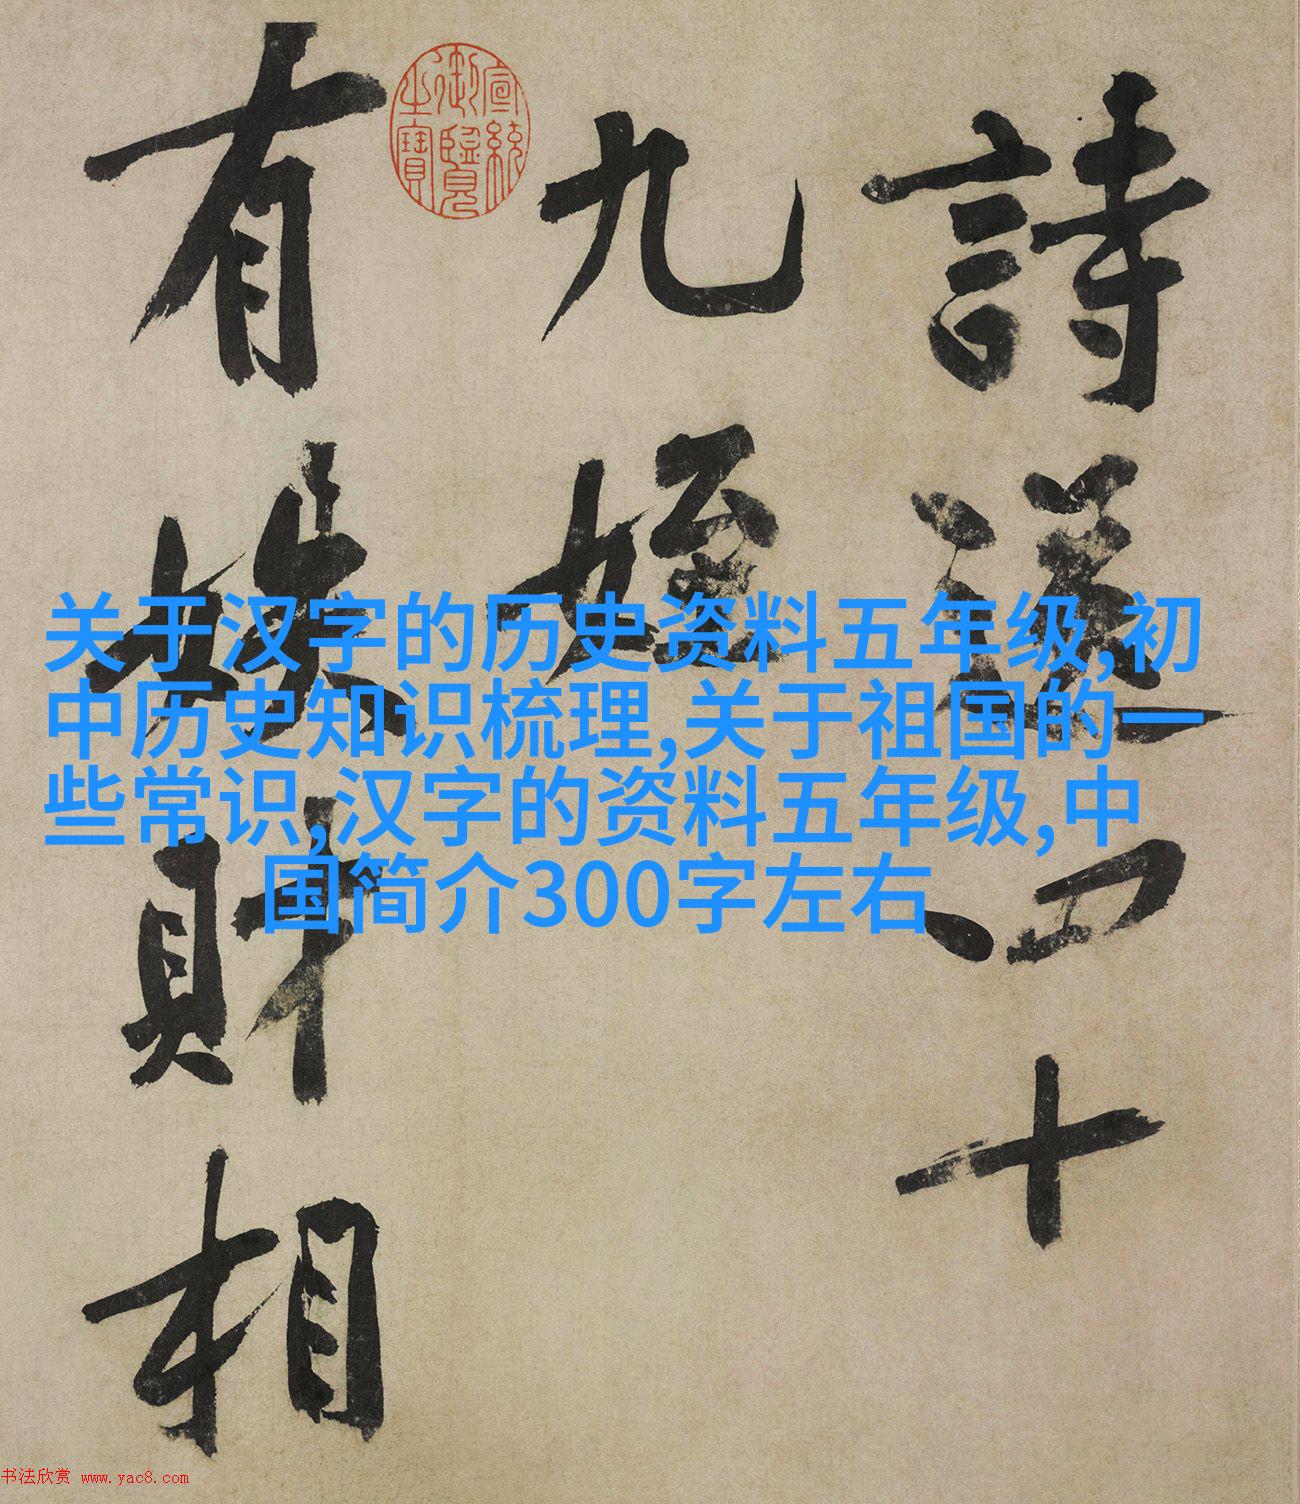 詩送四十
九姪
有財相
宣統御覽之寶
关于汉字的历史资料五年级,初
中历史知识梳理,关于祖国的一
些常识,汉字的资料五年级,中
国简介300字左右
书法欣赏 www.yac8.com